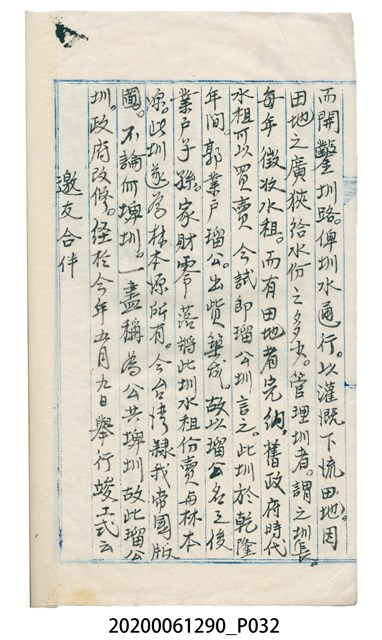 而開鑿圳路。俾圳水通行。以灌溉下流田地。因
田地之廣狹給水份之多少。管理圳者。謂之圳長。
每年徵收水租。而有田地者完納。舊政府時代
水租可以買賣。今試即瑠公圳言之。此圳於乾隆
年間。郭業戶瑠公。出貲築成。故以瑠公名之後
業戶子孫。家財零落將此圳水租份賣與林本
源。此圳遂為林本源所有。今台灣隸我帝國版
圖。不論何埤圳。一盡稱為公共埤圳故此瑠公
圳。政府改修。経於今年五月九日舉行竣工式云
邀友合伴
20200061290_P032